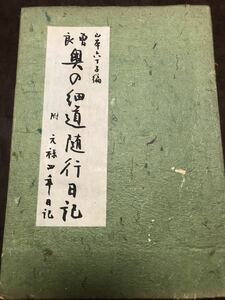 山本六丁子編
曽良
奥の細道随行日記
附 元禄四年日記